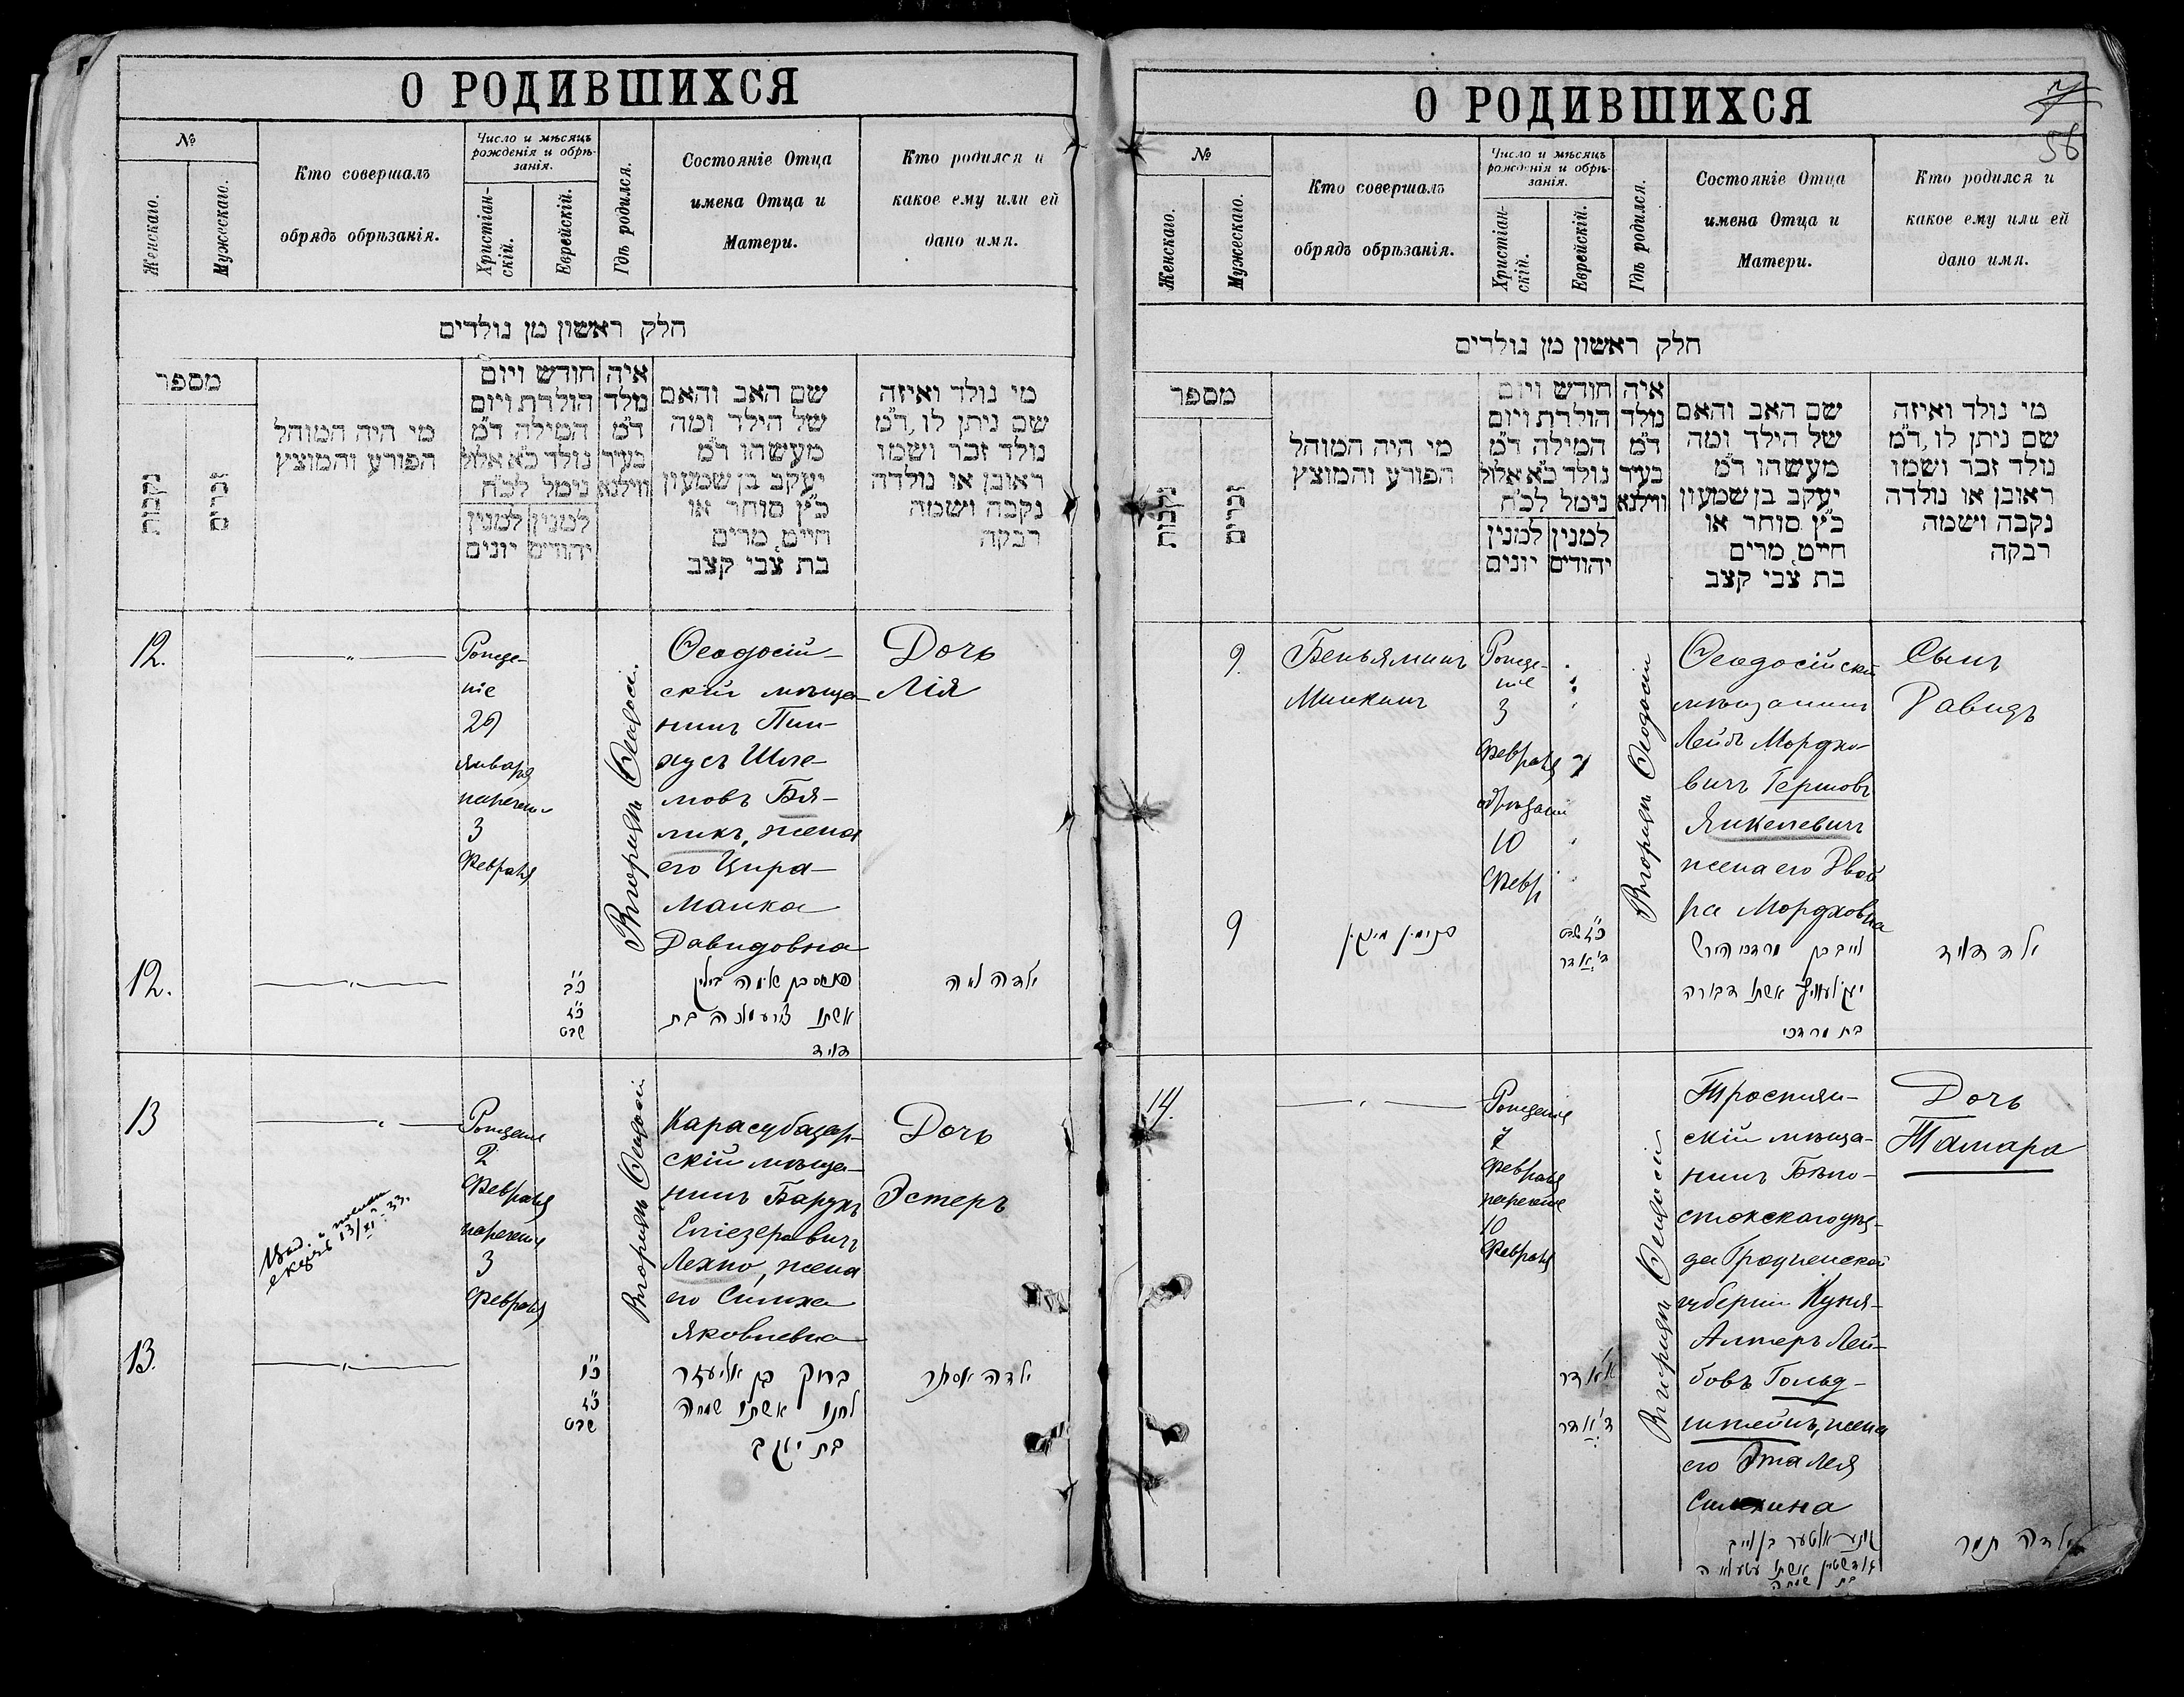 О РОДИВШИХСЯ
№
Женскаго.
Мужескаго.
Кто совершалъ
обрядъ обрѣзанія.
Число и мѣсяцъ
рожденія и обрѣ-
занія.
Христіан-
скій.
Еврейскій.
Гдѣ родился.
Состояніе Отца
имена Отца и
Матери.
Кто родился и
какое ему или ей
дано имя.
חלק ראשון מן נולדים
מספר
נקבות
זכרים
מי היה המוהל
הפורע והמוצץ
חודש ויום
הולדת ויום
המילה ד״מ
נולד כ״א אלול
נימל לכ״ח
למנין
יהודים
למנין
יונים
איה
נולד
ד״מ
בעיר
ווילנא
שם האב והאם
של הילד ומה
מעשהו ד״מ
יעקב בן שמעון
כ״ץ סוחר או
חייט, מרים
בת צבי קצב
מי נולד ואיזה
שם ניתן לו, ד״מ
נולד זכר ושמו
ראובן או נולדה
נקבה ושמה
רבקה
12.
Рожде-
ніе
29
Января
нареченіе
3
Февраля
Въ городѣ Ѳеодосіи.
Ѳеодосій-
скій мѣща-
нинъ Пин-
хусъ Шле-
мовъ Бя-
ликъ, жена
его Цира-
Малка
Давидовна
Дочь
Лія
12.
כ״ב
כ״ג
שבט
פנחס בן שלמה ביאליק
אשתו צירע מלכה בת
דוד
ילדה לאה
13
Рожденіе
2
Февраля
нареченіе
3
Февраля
Въ городѣ Ѳеодосіи
Карасубазар-
скій мѣща-
нинъ Барухъ
Еліезеровичъ
Лехно, жена
его Симха
Яковлевна
Дочь
Эстеръ
13/XI-33.
13.
כ״ו
כ״ג
שבט
ברוך בן אליעזר
לחנו אשתו שמחה
בת יעקב
ילדה אסתר
О РОДИВШИХСЯ
7
56
№
Женскаго.
Мужескаго.
Кто совершалъ
обрядъ обрѣзанія.
Число и мѣсяцъ
рожденія и обрѣ-
занія.
Христіан-
скій.
Еврейскій.
Гдѣ родился.
Состояніе Отца
имена Отца и
Матери.
Кто родился и
какое ему или ей
дано имя.
חלק ראשון מן נולדים
מספר
נקבות
זכרים
מי היה המוהל
הפורע והמוצץ
חודש ויום
הולדת ויום
המילה ד״מ
נולד כ״א אלול
נימל לכ״ח
למנין
יהודים
למנין
יונים
איה
נולד
ד״מ
בעיר
ווילנא
שם האב והאם
של הילד ומה
מעשהו ד״מ
יעקב בן שמעון
כ״ץ סוחר או
חייט, מרים
בת צבי קצב
מי נולד ואיזה
שם ניתן לו, ד״מ
נולד זכר ושמו
ראובן או נולדה
נקבה ושמה
רבקה
9.
Беньяминъ
Минкинъ
Рожде-
ніе
3
Февраля
обрѣзаніе
10
Февр
Въ городѣ Ѳеодосіи
Ѳеодосійскій
мѣщанинъ
Лейбъ Мордхо-
вичъ Гершовъ
Янкелевичъ
жена его Двой
ра Мордховна
Сынъ
Давидъ
9
בנימין מינקין
כ״ז שבט
ד׳ אדר
לייב בן מרדכי הירש
יאנקלעוויץ אשתו דבורה
בת מרדכי
ילד דוד
14.
Рожденіе
7
Февраля
нареченіе
10
Февраля
Въ городѣ Ѳеодосіи
Тростян-
скій мѣща-
нинъ Бѣло-
стокскаго уѣз-
да Гродненской
губерніи Куня-
Алтеръ Лей-
бовъ Гольд-
штейнъ, жена
его Эта Лея
Симхина
Дочь
Тамара
א׳ אדר
ד׳ אדר
קונע אלטער בן לייב
גאלדשטיין אשתו עטע לאה
בת שמחה
ילדה תמר